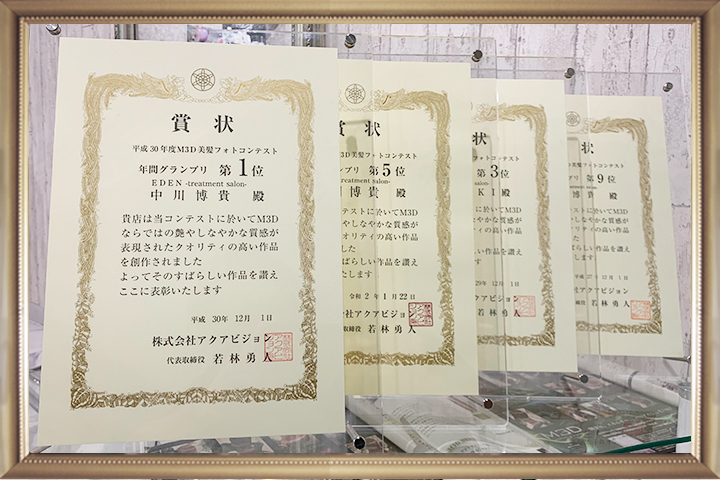 賞状
平成30年度M3D美髪フォトコンテスト
年間グランプリ 第1位
EDEN -treatment salon-
中川博貴 殿
貴店は当コンテストに於いてM3D
ならではの艶やしなやかな質感が
表現されたクオリティの高い作品
を創作されました
よってそのすばらしい作品を讃え
ここに表彰いたします
平成 30年 12月 1日
株式会社アクアビジョン
代表取締役 若林勇人
状
3D美髪フォトコンテスト
プリ 第5位
treatment salon-
博貴 殿
テストに於いてM3D
しなやかな質感が
オリティの高い作品
した
ばらしい作品を讃え
たします
令和 2年 1月 22日
社アクアビジョン
取締役 若林勇人
状
フォトコンテスト
第3位
KI 殿
に於いてM3D
やかな質感が
ティの高い作品
しい作品を讃え
す
29年 12月 1日
クアビジョン
若林勇人
フォトコンテスト
プリ 第9位
博貴 殿
に於いてM3D
やかな質感が
ティの高い作品
ばらしい作品を讃え
平成 27年 12月 1日
社アクアビジョン
取締役 若林勇人
M3D